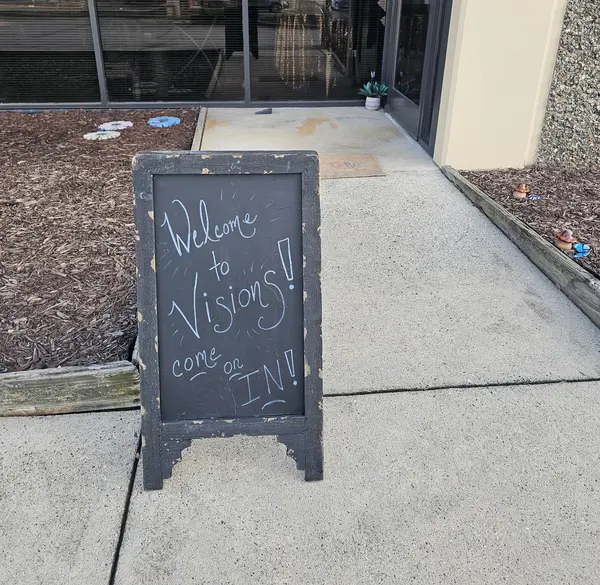 Welcome
to
Visions!
come on
IN!